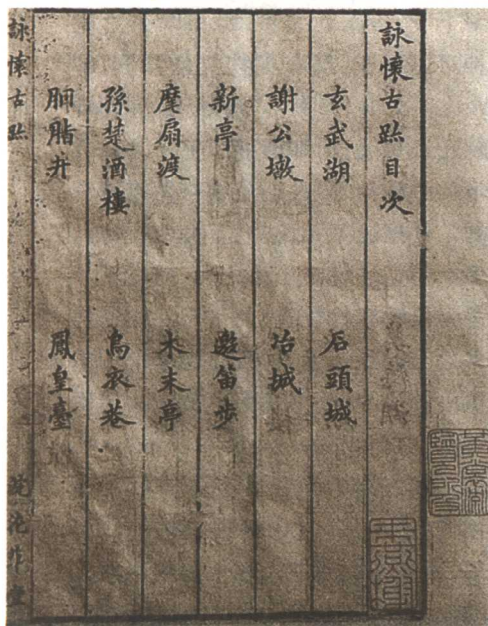 詠懷古跡目次
玄武湖 石頭城
謝公墩 冶城
新亭 邀笛步
麾扇渡 木末亭
孫楚酒樓 烏衣巷
胭脂井 鳳皇臺
詠懷古跡